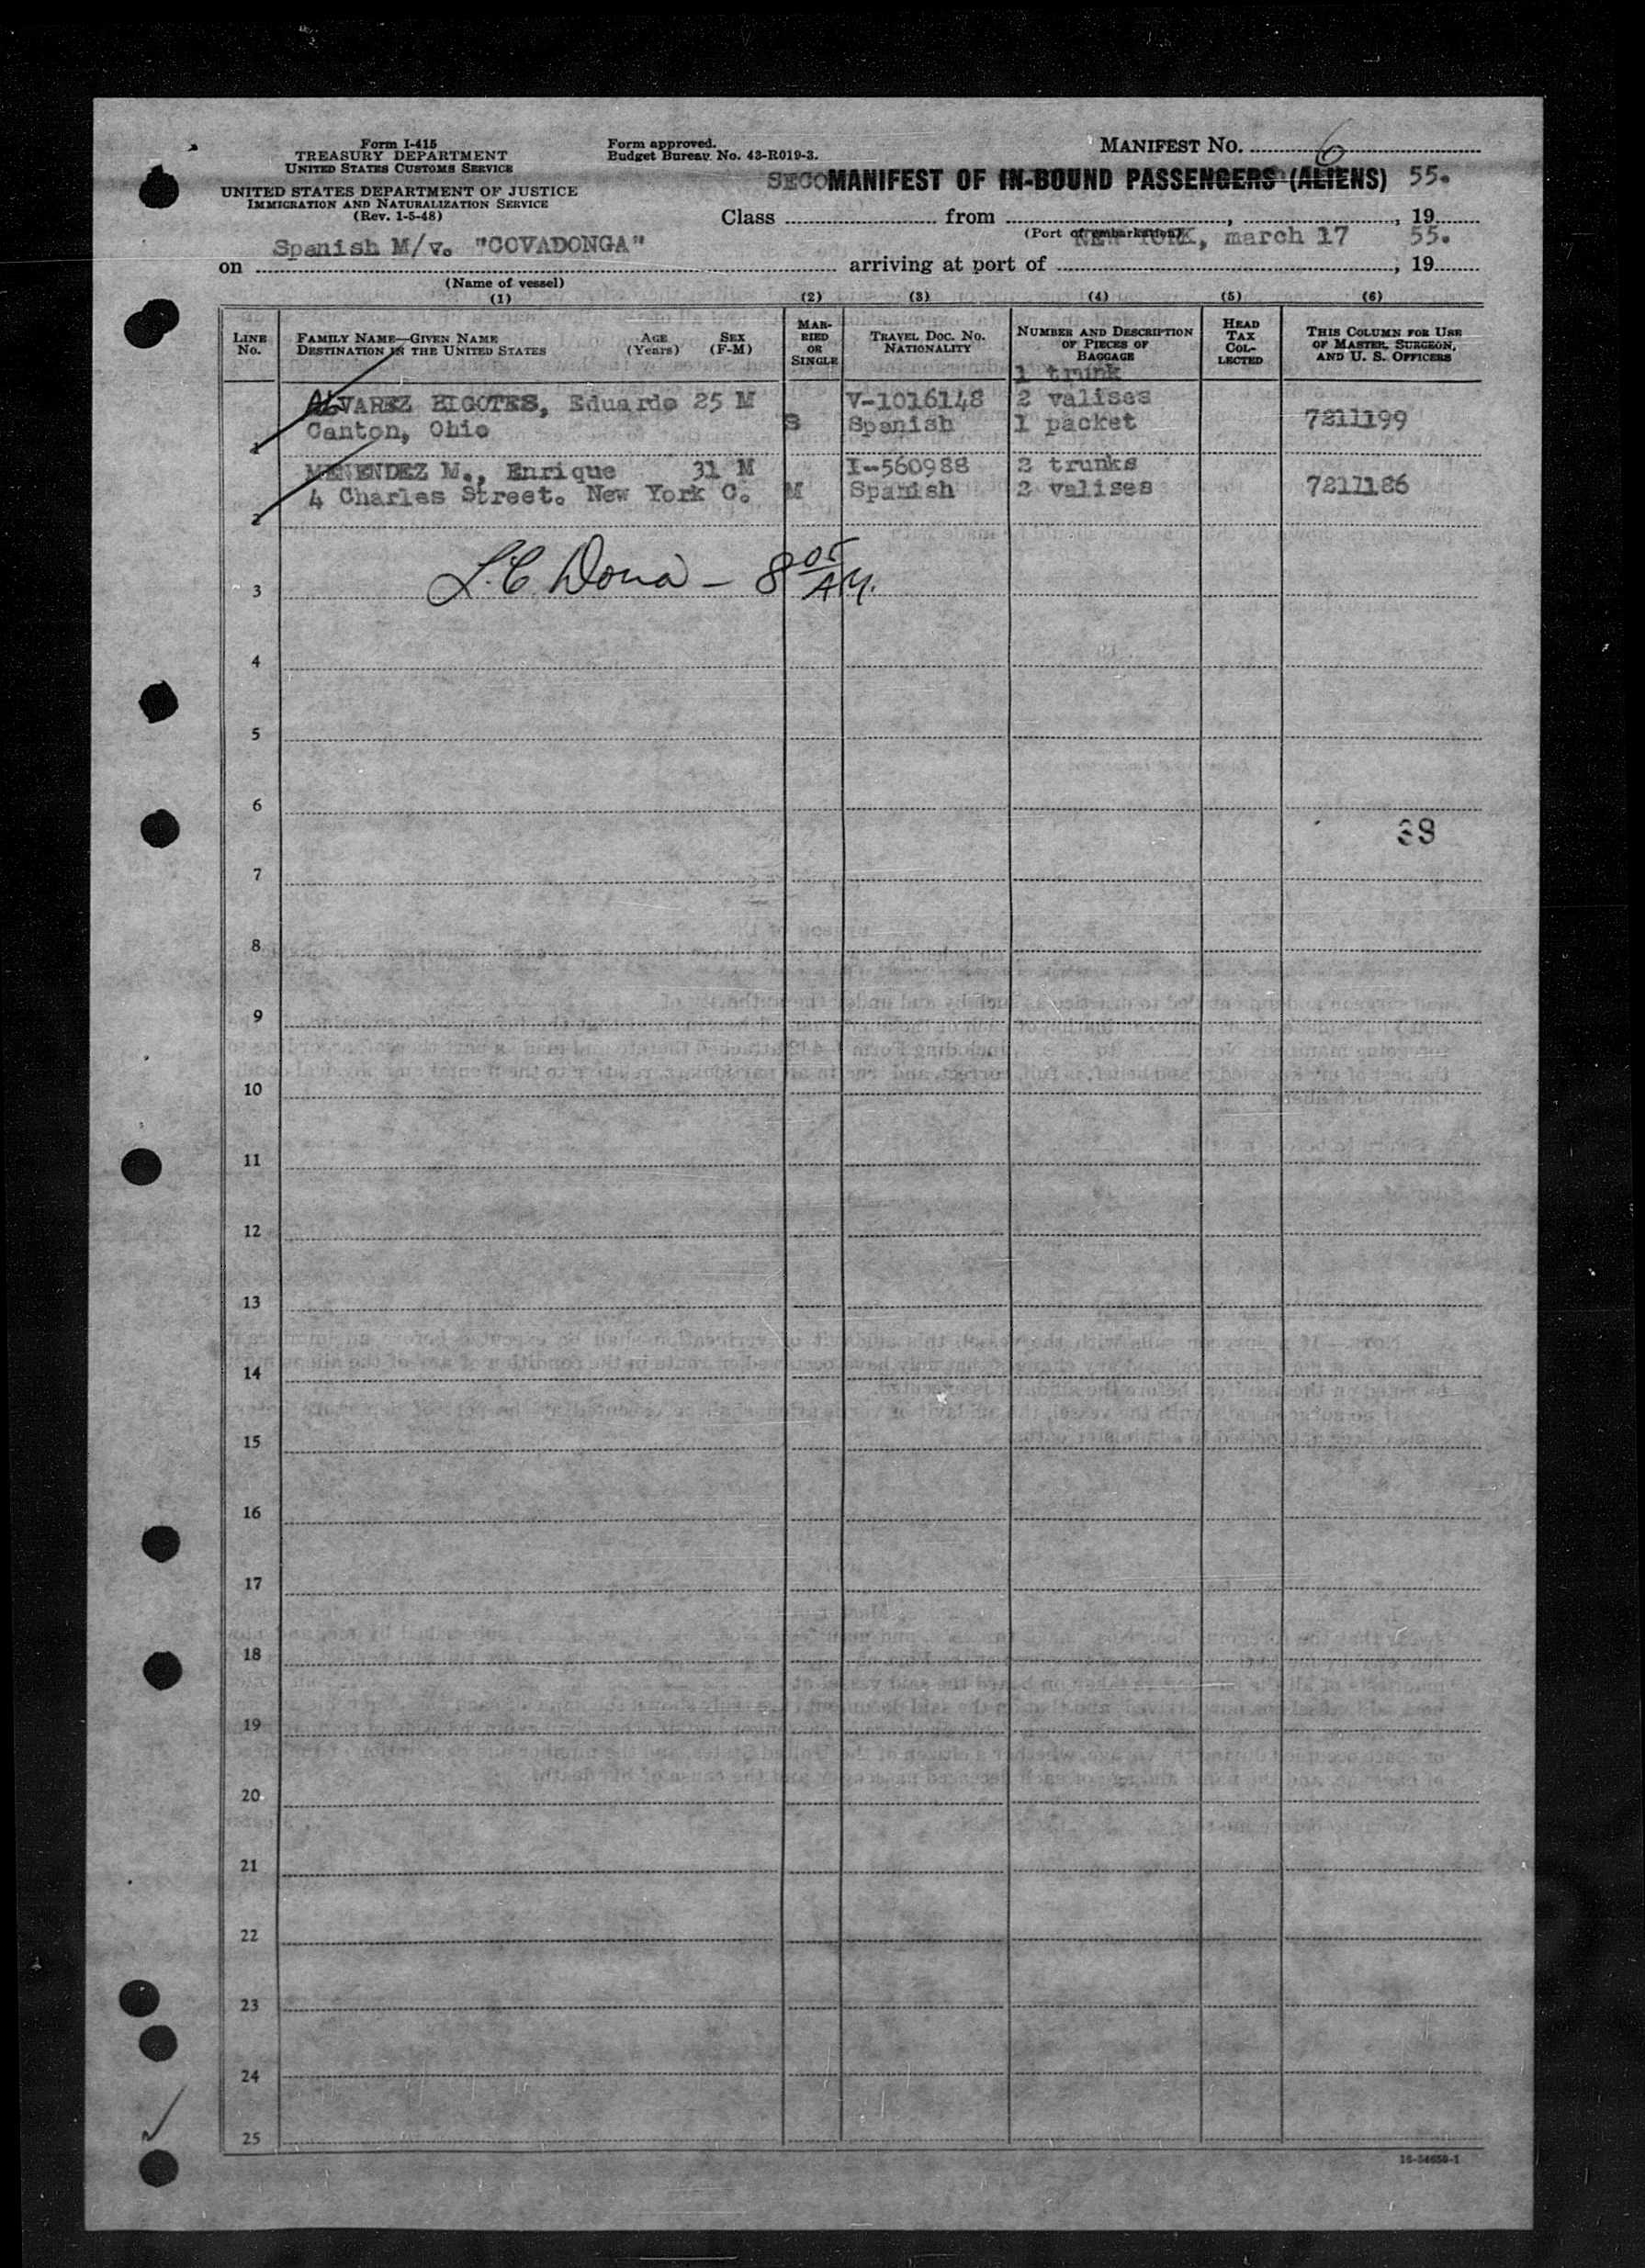 Form I-415
TREASURY DEPARTMENT
UNITED STATES CUSTOMS SERVICE
UNITED STATES DEPARTMENT OF JUSTICE
IMMIGRATION AND NATURALIZATION SERVICE
(Rev. 1-5-48)
Form approved.
Budget Bureau No. 43-R019-3.
MANIFEST No. 6
MANIFEST OF IN-BOUND PASSENGERS (ALIENS) 55.
Class from , , 19
(Port of embarkation)
Spanish M/v. "COVADONGA" NEW YORK, march 17 55.
on arriving at port of , 19
(Name of vessel)
(1) (2) (3) (4) (5) (6)
LINE No. FAMILY NAME—GIVEN NAME DESTINATION IN THE UNITED STATES AGE (Years) SEX (F-M) MARRIED OR SINGLE TRAVEL DOC. No. NATIONALITY NUMBER AND DESCRIPTION OF PIECES OF BAGGAGE HEAD TAX COLLECTED THIS COLUMN FOR USE OF MASTER, SURGEON, AND U. S. OFFICERS
1 trunk
ALVAREZ BIGOTES, Eduardo 25 M V-1016148 2 valises
1 Canton, Ohio S Spanish 1 packet 7211199
MENENDEZ M., Enrique 31 M I-560988 2 trunks
2 4 Charles Street. New York C. M Spanish 2 valises 7211186
3 L.C. Dona - 8 05 A.M.
4
5
6
38
7
8
9
10
11
12
13
14
15
16
17
18
19
20
21
22
23
24
25
16-54650-1